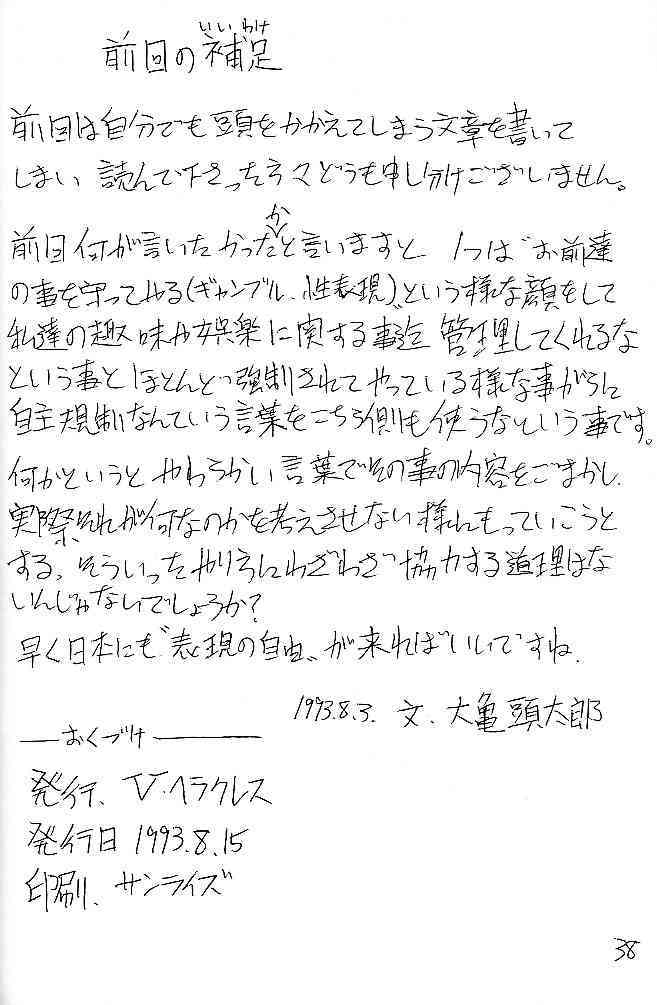 いいわけ
前回の補足
前回は自分でも頭をかかえてしまう文章を書いて
しまい 読んで下さった方々どうも申し分けございません。
前回何が言いたかったかと言いますと 1つは"お前達
の事を守ってやる(ギャンブル、性表現)"という様な顔をして
私達の趣味や娯楽に関する事迄 管理してくれるな
という事と ほとんど強制されてやっている様な事がらに
自主規制なんていう言葉をこちら側も使うなという事です。
何かというと やわらかい言葉でその事の内容をごまかし、
実際それが何なのかを考えさせない様にもっていこうと
する。そういったやり方にわざわざ協力する道理はな
いんじゃないでしょうか?
早く日本にも"表現の自由"が来ればいいですね。
1993.8.3. 文.大亀頭太郎
おくづけ
発行、V・ヘラクレス
発行日 1993.8.15
印刷、サンライズ
38